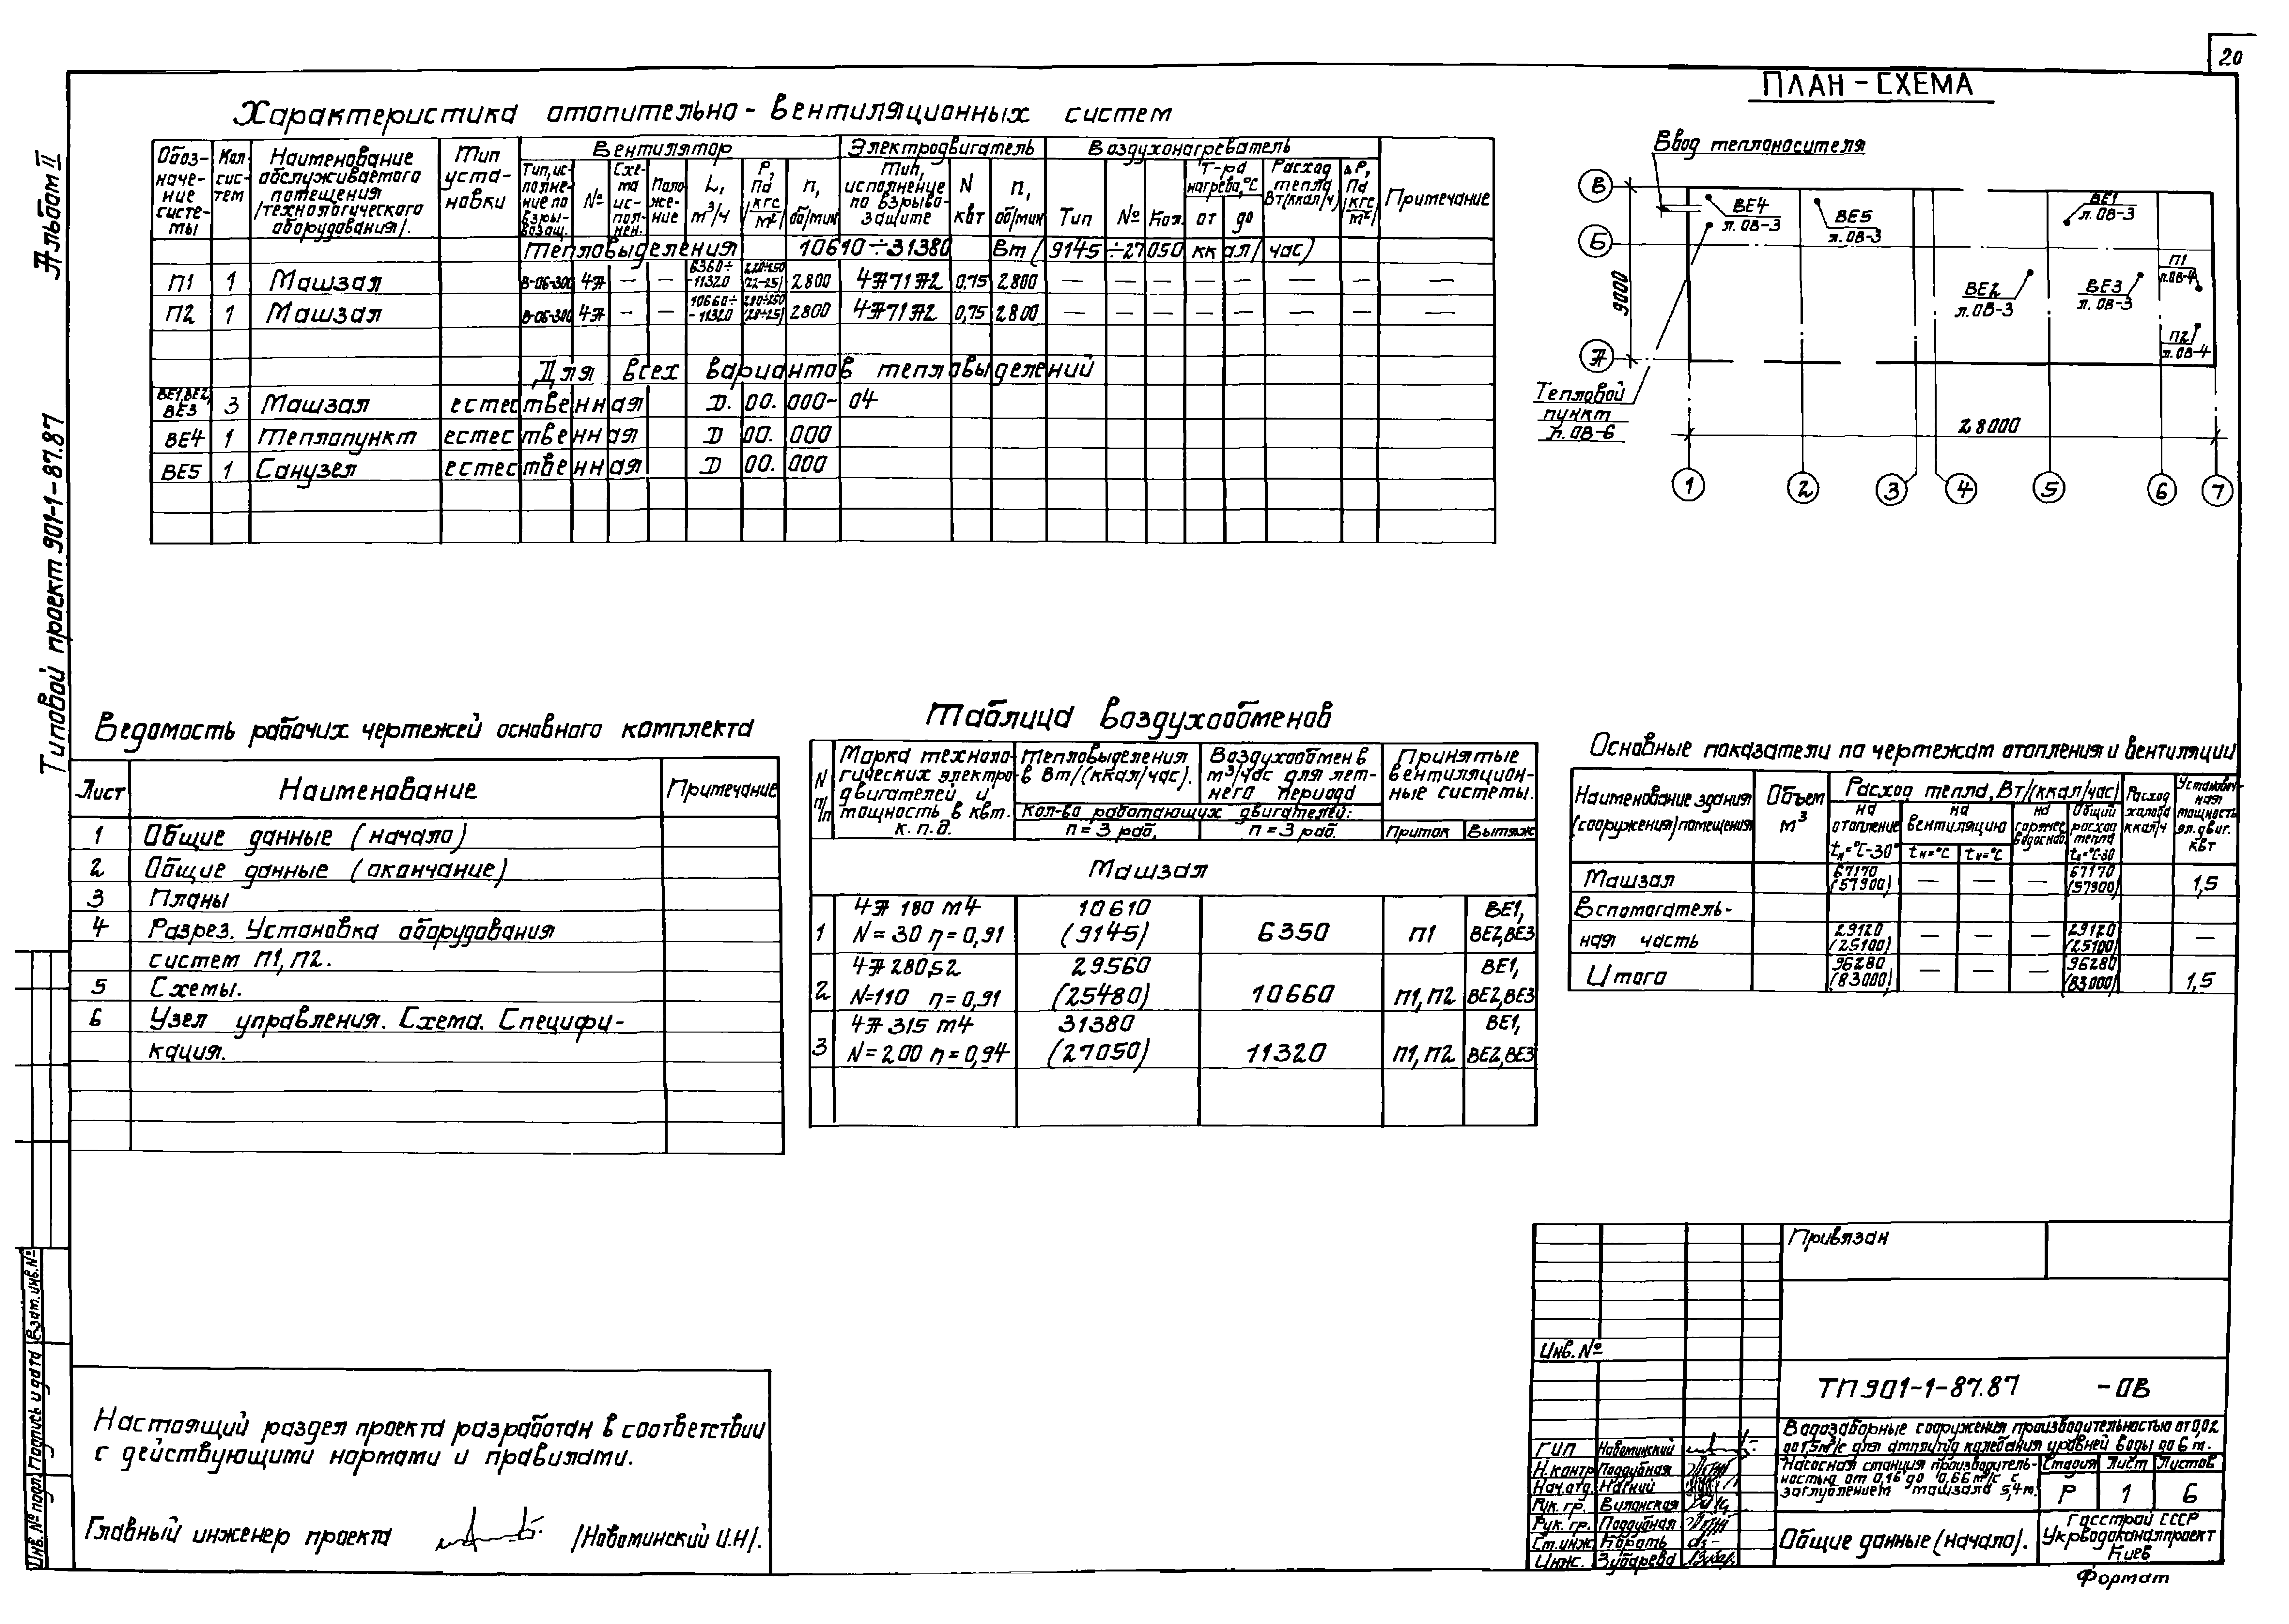 20
Альбом II
Типовой проект 901-1-87.87
Характеристика отопительно-вентиляционных систем
Обоз-
наче-
ние
систе-
мы
Кол.
сис-
тем
Наименование
обслуживаемого
помещения
/технологического
оборудования/.
Тип
уста-
новки
Вентилятор
Тип, ис-
полне-
ние по
взры-
возащ.
№
Схе-
ма
ис-
пол-
нен.
Поло-
же-
ние
L,
м³/ч
Р,
Па
(кгс/м²)
n,
об/мин
Электродвигатель
Тип,
исполнение
по взрыво-
защите
N
квт
n,
об/мин
Воздухонагреватель
Тип
№
Кол.
Т-ра
нагрева, °С
от
до
Расход
тепла
Вт (ккал/ч)
ΔР,
Па
(кгс/м²)
Примечание
Тепловыделения 10610÷31380 Вт (9145÷27050 ккал/час)
П1 1 Машзал В-06-300 4А — — 6360÷ -11320 220÷250 (22-25) 2800 4А71А2 0,75 2800 — — — — — — — —
П2 1 Машзал В-06-300 4А — — 10660÷ -11320 280÷250 (28÷25) 2800 4А71А2 0,75 2800 — — — — — — — —
Для всех вариантов тепловыделений
ВЕ1, ВЕ2,
ВЕ3 3 Машзал естественная Д. 00. 000-04
ВЕ4 1 Теплопункт естественная Д 00. 000
ВЕ5 1 Санузел естественная Д 00. 000
ПЛАН-СХЕМА
Ввод теплоносителя
В
Б
А
9000
ВЕ4
л. ОВ-3
ВЕ5
л. ОВ-3
ВЕ1
л. ОВ-3
ВЕ2
л. ОВ-3
ВЕ3
л. ОВ-3
П1
л. ОВ-4
П2
л. ОВ-4
Тепловой
пункт
л. ОВ-6
28000
1 2 3 4 5 6 7
Ведомость рабочих чертежей основного комплекта
Лист Наименование Примечание
1 Общие данные (начало)
2 Общие данные (окончание)
3 Планы
4 Разрез. Установка оборудования
систем П1, П2.
5 Схемы.
6 Узел управления. Схема. Специфи-
кация.
Таблица воздухообменов
N
п/п
Марка техноло-
гических электро-
двигателей и
мощность в квт.
к.п.д.
Тепловыделения
в Вт/(ккал/час).
Воздухообмен в
м³/час для лет-
него периода
Кол-во работающих двигателей:
n = 3 раб.
n = 3 раб.
Принятые
вентиляцион-
ные системы.
Приток
Вытяж
Машзал
1 4А 180 м4 10610 ВЕ1,
N = 30 η = 0,91 (9145) 6350 П1 ВЕ2, ВЕ3
2 4А 280s2 29560 ВЕ1,
N=110 η = 0,91 (25480) 10660 П1, П2 ВЕ2, ВЕ3
3 4А 315 м4 31380 ВЕ1,
N = 200 η = 0,94 (27050) 11320 П1, П2 ВЕ2, ВЕ3
Основные показатели по чертежам отопления и вентиляции
Наименование здания
(сооружения) помещения
Объем
м³
Расход тепла, Вт/(ккал/час)
на
отопление
tн=°С-30°
на
вентиляцию
tн=°С
tн=°С
на
горячее
водоснаб.
Общий
расход
тепла
tн=°С-30
Расход
холода
ккал/ч
Установоч-
ная
мощность
эл. двиг.
квт
Машзал 67170 (57900) — — — 67170 (57900) 1,5
Вспомогатель-
ная часть 29120 (25100) — — — 29120 (25100) —
Итого 96280 (83000) — — — 96280 (83000) 1,5
Настоящий раздел проекта разработан в соответствии
с действующими нормами и правилами.
Главный инженер проекта /Новоминский И.Н/.
Взам. инв. №
Подпись и дата
Инв. № подл.
Привязан
Инв. №
ТП 901-1-87.87 -ОВ
Водозаборные сооружения производительностью от 0,02
до 1,5 м³/с для амплитуд колебания уровней воды до 6 м.
Насосная станция производитель-
ностью от 0,16 до 0,66 м³/с с
заглублением машзала 5,4 м.
Стадия Лист Листов
Р 1 6
Общие данные (начало).
Госстрой СССР
Укрводоканалпроект
Киев
ГИП Новоминский
Н. контр. Поддубная
Нач. отд. Нагний
Рук. гр. Виланская
Рук. гр. Поддубная
Ст. инж. Король
Инж. Зубарева
Формат